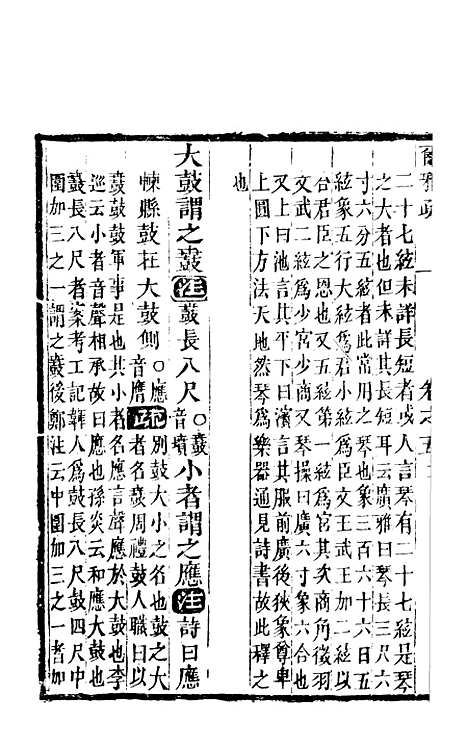 爾雅疏 卷之五
二十七絃未詳長短者或人言琴有二十七絃是琴
之大者也但未詳其長短耳云廣雅曰琴長三尺六
寸六分五絃者此常用之琴也象三百六十六日五
絃象五行大絃爲君小絃爲臣文王武王加二絃以
合君臣之恩也又五絃第一絃爲宮其次商角徵羽
文武二絃爲少宮少商又琴操曰廣六寸象六合也
又上曰池言其平下曰濱言其服前廣後狹象尊卑
上圓下方法天地然琴爲樂器通見詩書故此釋之
也
大鼓謂之鼖注鼖長八尺○鼖音墳小者謂之應注詩曰應
朄縣鼓在大鼓側○應音膺疏別鼓大小之名也鼓之大
者名鼖周禮鼓人職曰以
鼖鼓鼓軍事是也其小者名應言聲應於大鼓也李
巡云小者音聲相承故曰應也孫炎云和應大鼓也
鼖長八尺者案考工記韗人爲鼓長八尺鼓四尺中
圍加三之一謂之鼖後鄭注云中圍加三之一者加